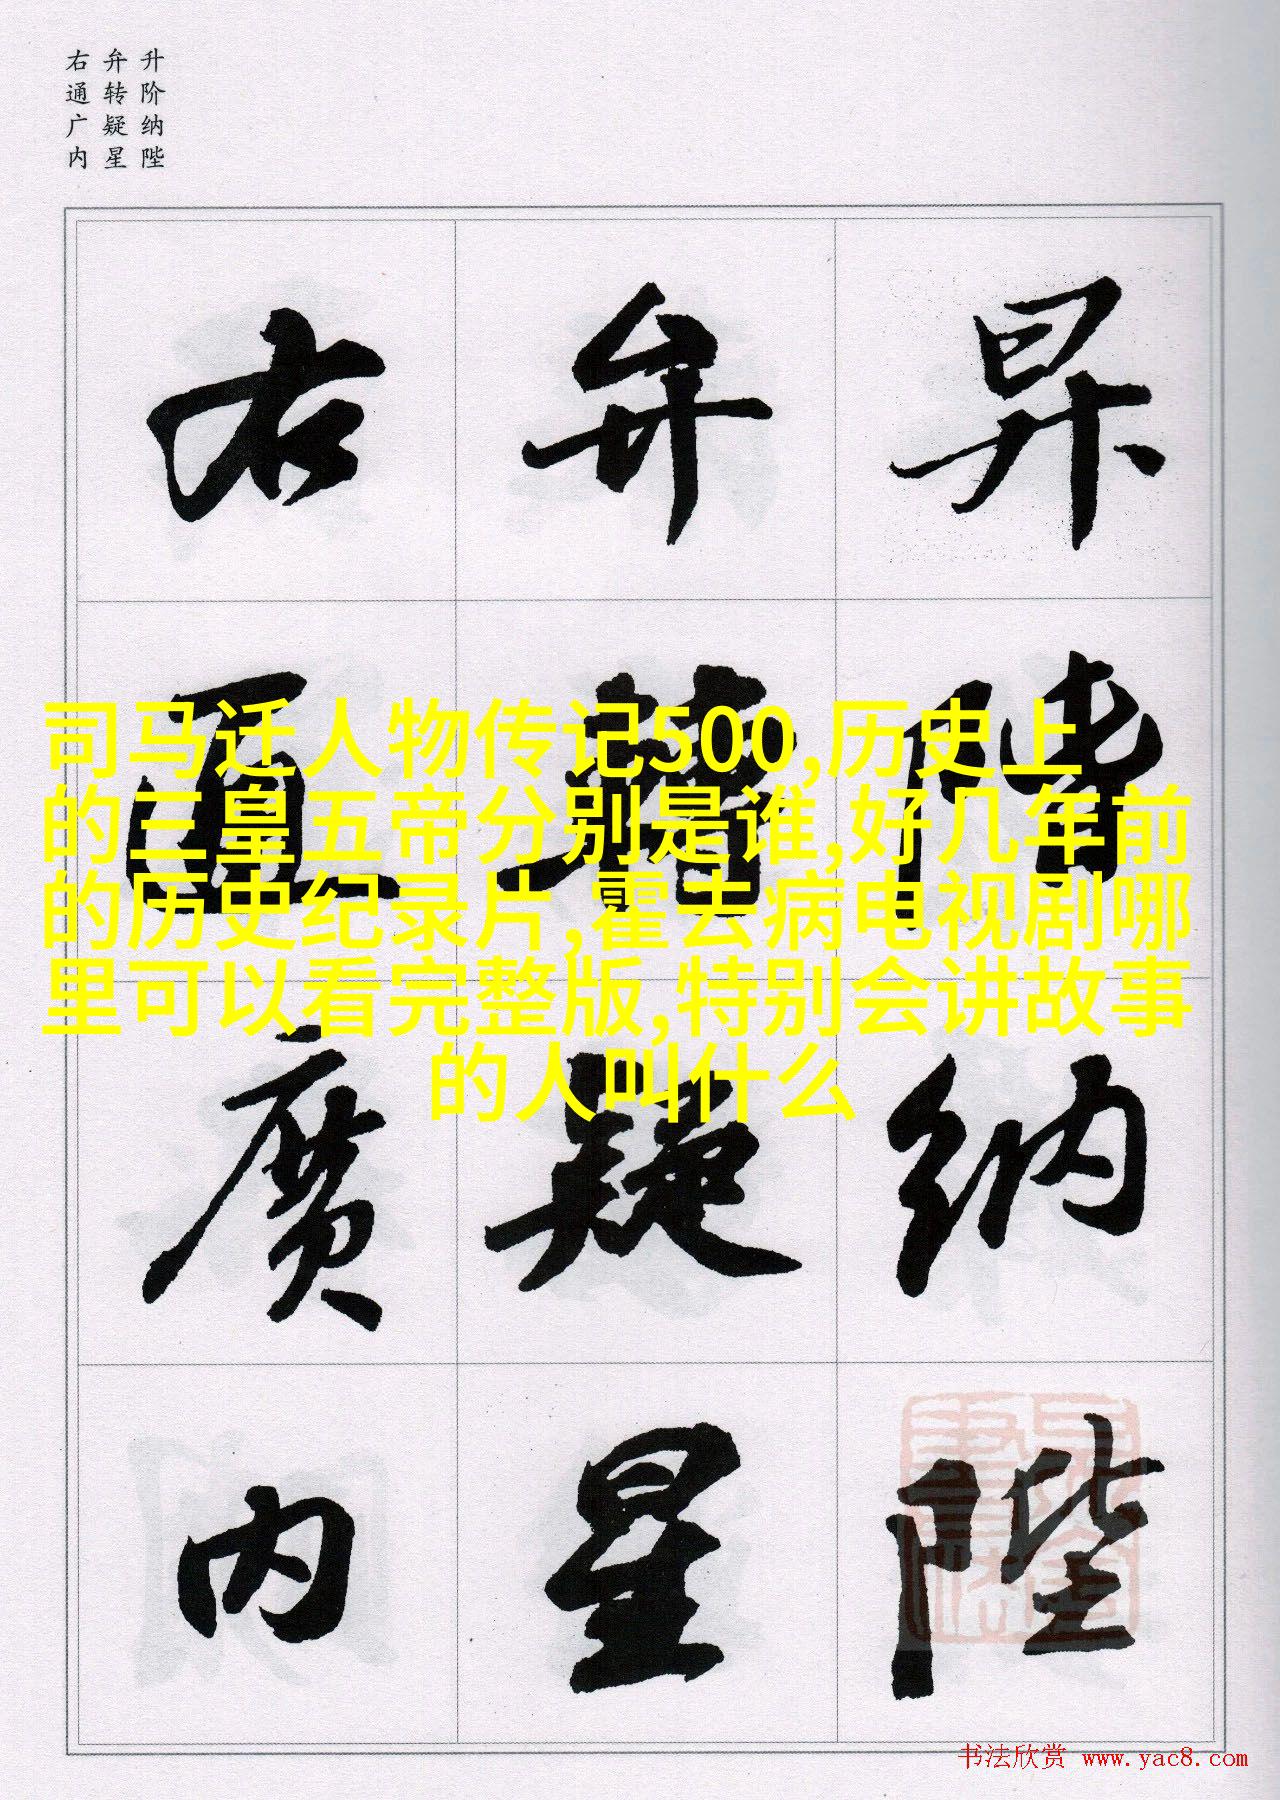 升阶纳陛
弁转疑星
右通广内
昇階納陛
弁轉疑星
右通廣内
司马迁人物传记500,历史上
的三皇五帝分别是谁,好几年前
的历史纪录片,霍去病电视剧哪
里可以看完整版,特别会讲故事
的人叫什么
书法欣赏 www.yac8.com